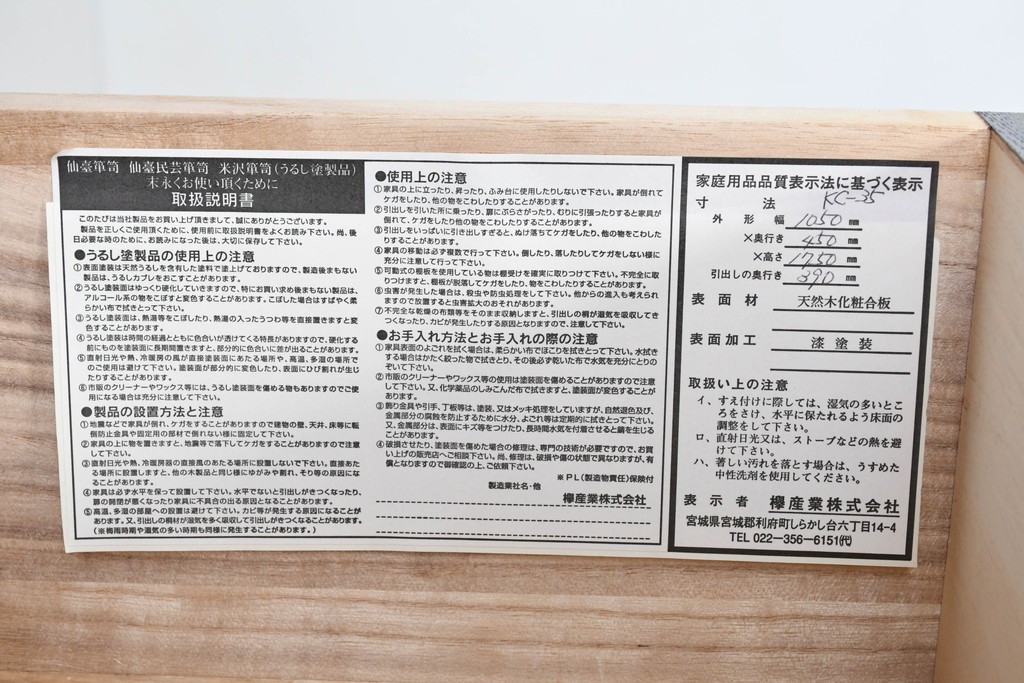 仙臺箪笥 仙臺民芸箪笥 米沢箪笥(うるし塗製品)
末永くお使い頂くために
取扱説明書
このたびは当社製品をお買い上げ頂きまして、誠にありがとうございます。
製品を正しくご使用頂くために、使用前に取扱説明書をよくお読み下さい。尚、後
日必要な時のために、お読みになった後は、大切に保存して下さい。
●うるし塗製品の使用上の注意
①表面塗装は天然うるしを含有した塗料で塗上げておりますので、製造後まもない
製品は、うるしカブレをおこすことがあります。
②うるし塗装面はゆっくり硬化していきますので、特にお買い求め後まもない製品は、
アルコール系の物をこぼすと変色することがあります。こぼした場合はすばやく柔
らかい布で拭きとって下さい。
③うるし塗装面は、熱湯等をこぼしたり、熱湯の入ったうつわ等を直接置きますと変
色することがあります。
④うるし塗装は時間の経過とともに色合いが透けてくる特長がありますので、硬化する
前にものを塗装面に長期間置きますと、部分的に色合いに差が出ることがあります。
⑤直射日光や熱、冷暖房の風が直接塗装面にあたる場所や、高温、多湿の場所で
のご使用は避けて下さい。塗装面が部分的に変色したり、表面にひび割れが生じ
たりすることがあります。
⑥市販のクリーナーやワックス等には、うるし塗装面を傷める物もありますのでご使
用になる場合は充分に注意して下さい。
●製品の設置方法と注意
①地震などで家具が倒れ、ケガをすることがありますので建物の壁、天井、床等に転
倒防止金具や固定用の部材で倒れない様に固定して下さい。
②家具の上に物を置きますと、地震等で落下してケガをすることがありますので注意
して下さい。
③直射日光や熱、冷暖房器の直接風のあたる場所に設置しないで下さい。直接あた
る場所に設置しますと、他の木製品と同じ様にゆがみや割れ、そり等の原因にな
ることがあります。
④家具は必ず水平を保って設置して下さい。水平でないと引出しがきつくなったり、
扉の開閉が悪くなったり家具に不具合の出る原因となることがあります。
⑤高温、多湿の部屋への設置は避けて下さい。カビ等が発生する原因になることが
あります。又、引出しの桐材が湿気を多く吸収して引出しがきつくなることがあります。
(※梅雨時期や湿気の多い時期も同様に発生することがあります。)
●使用上の注意
①家具の上に立ったり、昇ったり、ふみ台に使用したりしないで下さい。家具が倒れて
ケガをしたり、他の物をこわしたりすることがあります。
②引出しを引いた所に乗ったり、扉にぶらさがったり、むりに引張ったりすると家具が
倒れて、ケガをしたり他の物をこわしたりすることがあります。
③引出しをいっぱいに引き出しすぎると、ぬけ落ちてケガをしたり、他の物をこわした
りすることがあります。
④家具の移動は必ず複数で行って下さい。倒したり、落したりしてケガをしない様に
充分に注意して行って下さい。
⑤可動式の棚板を使用している物は棚受けを確実に取りつけて下さい。不完全に取
りつけますと、棚板が脱落してケガをしたり、物をこわしたりすることがあります。
⑥虫害が発生した場合は、殺虫や防虫処理をして下さい。他からの進入も考えられ
ますので放置すると虫害拡大のおそれがあります。
⑦不完全な乾燥の布類等をそのまま収納しますと、引出しの桐が湿気を吸収してき
つくなったり、カビが発生したりする原因となりますので、注意して下さい。
●お手入れ方法とお手入れの際の注意
①家具表面のよごれを拭く場合は、柔らかい布でほこりを拭きとって下さい。水拭き
する場合はかたく絞った物で拭きとり、その後必ず乾いた布で水気を充分にとりの
ぞいて下さい。
②市販のクリーナーやワックス等の使用は塗装面を傷めることがありますので注意
して下さい。又、化学薬品のしみこんだ布で拭きますと、塗装面が変色することがあ
ります。
③飾り金具や引手、丁板等は、塗装、又はメッキ処理をしていますが、自然退色及び、
金属部分の腐敗を防止するために水分、よごれ等は定期的に拭きとって下さい。
又、金属部分は、表面にキズ等をつけたり、長時間水気を付着させると錆を生じる
ことがあります。
④破損させたり、塗装面を傷めた場合の修理は、専門の技術が必要ですので、お買
い上げの販売店へご相談下さい。尚、修理は、破損や傷の状態で異なりますが、有
償となりますので御確認の上、ご依頼下さい。
※PL(製造物責任)保険付
製造業社名・他
欅産業株式会社
家庭用品品質表示法に基づく表示
寸法 KC-35
外形幅 1050 ㎜
×奥行き 450 ㎜
×高さ 1750 ㎜
引出しの奥行き 390 ㎜
表面材 天然木化粧合板
表面加工 漆塗装
取扱い上の注意
イ、すえ付けに際しては、湿気の多いとこ
ろをさけ、水平に保たれるよう床面の
調整をして下さい。
ロ、直射日光又は、ストーブなどの熱を避
けて下さい。
ハ、著しい汚れを落とす場合は、うすめた
中性洗剤を使用してください。
表示者 欅産業株式会社
宮城県宮城郡利府町しらかし台六丁目14-4
TEL 022-356-6151㈹